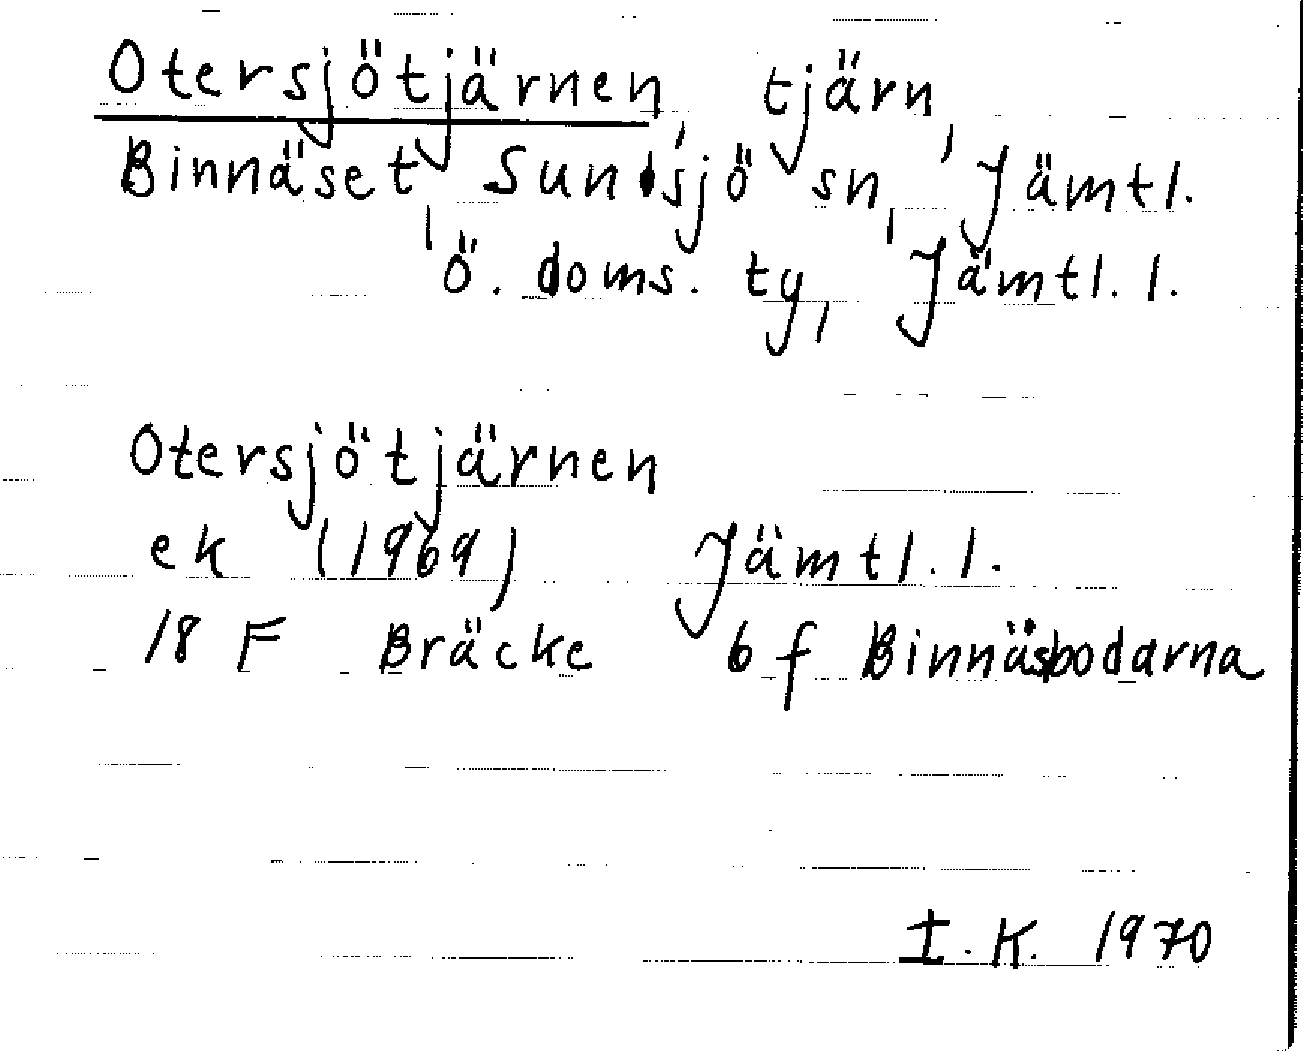 Otersjötjärnen, tjärn,
Binnäset, Sundsjö sn, Jämtl.
ö. doms. ty, Jämtl. l.
Otersjötjärnen
ek (1969) Jämtl. l.
18 F Bräcke 6 f Binnäsbodarna
I. K. 1970